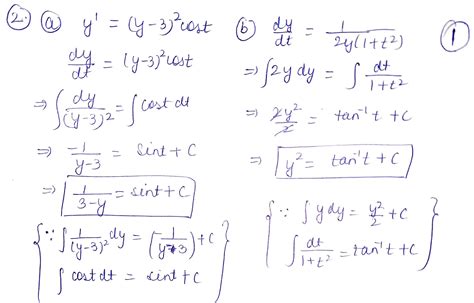 2. (a) y' = (y-3)²cost
dy/dt = (y-3)²cost
⇒ ∫ dy/(y-3)² = ∫ cost dt
⇒ -1/(y-3) = sint + C
⇒ 1/(3-y) = sint + C
{ ∵ ∫ 1/(y-3)² dy = (-1/(y-3)) + C
∫ cost dt = sint + C }
(b) dy/dt = 1/(2y(1+t²))
⇒ ∫2y dy = ∫ dt/(1+t²)
⇒ 2y²/2 = tan⁻¹t + C
⇒ y² = tan⁻¹t + C
{ ∵ ∫ y dy = y²/2 + C
∫ dt/(1+t²) = tan⁻¹t + C }
1